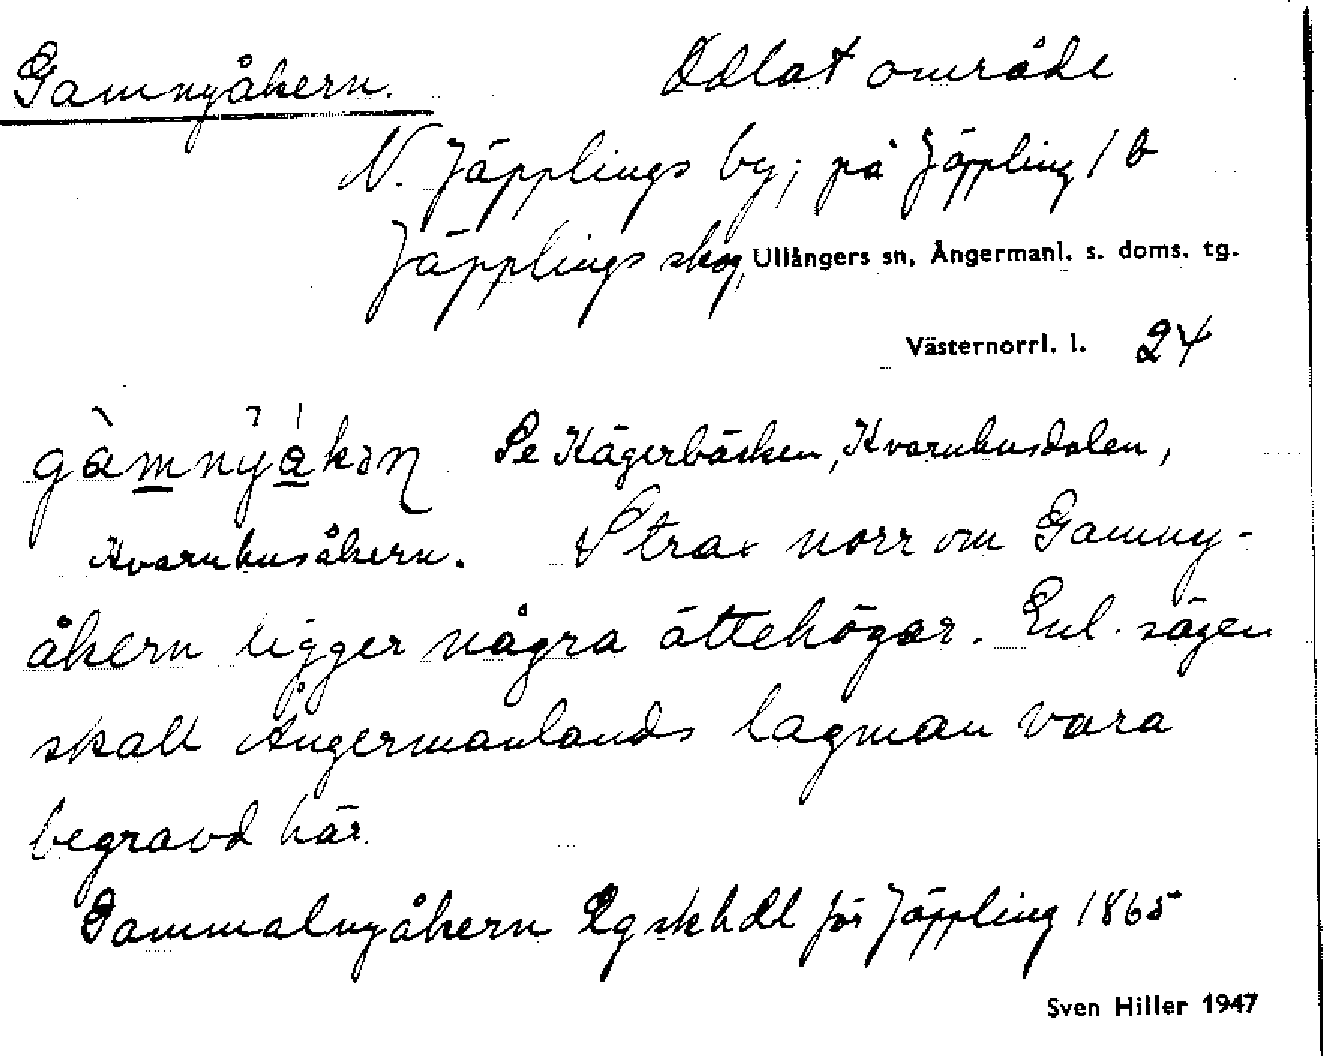 Gamnyåkern. Odlat område
N. Jäpplings by; på Jäppling 1 b
Jäpplings skog, Ullångers sn, Ångermanl. s. doms. tg.
Västernorrl. l. 24
gàmnyákən Se Kägerbäcken, Kvarnhusdalen,
Kvarnhusåkern. Strax norr om Gamny-
åkern ligger några ättehögar. Enl. sägen
skall Ångermanlands lagman vara
begravd här.
Gammalnyåkern Lgskhdl för Jäppling 1865
Sven Hiller 1947